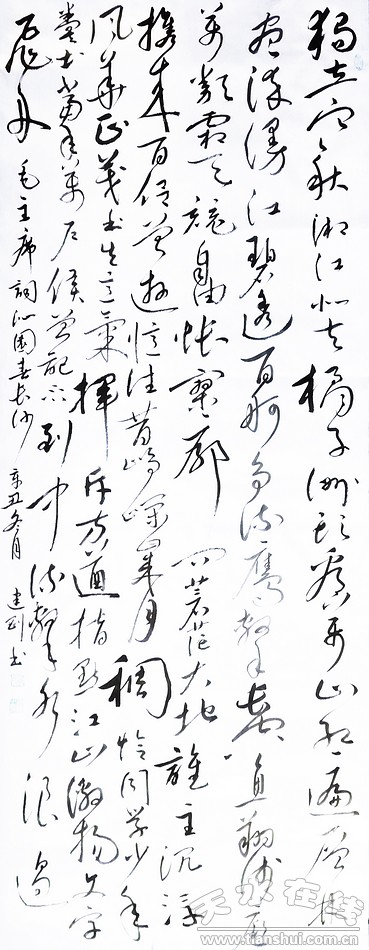 獨立寒秋湘江北去橘子洲头看萬山红遍层林
尽染漫江碧透百舸争流鹰擊長空鱼翔浅底
萬類霜天競自由悵寥廓问苍茫大地誰主沉浮
携来百侣曾遊忆往昔峥嵘岁月稠恰同学少年
风華正茂书生意氣揮斥方遒指點江山激揚文字
粪土当年萬户侯曾記否到中流擊水浪遏
飛舟 毛主席詞沁園春長沙 辛丑冬月 建刚书
天水在线
www.tianshui.com.cn